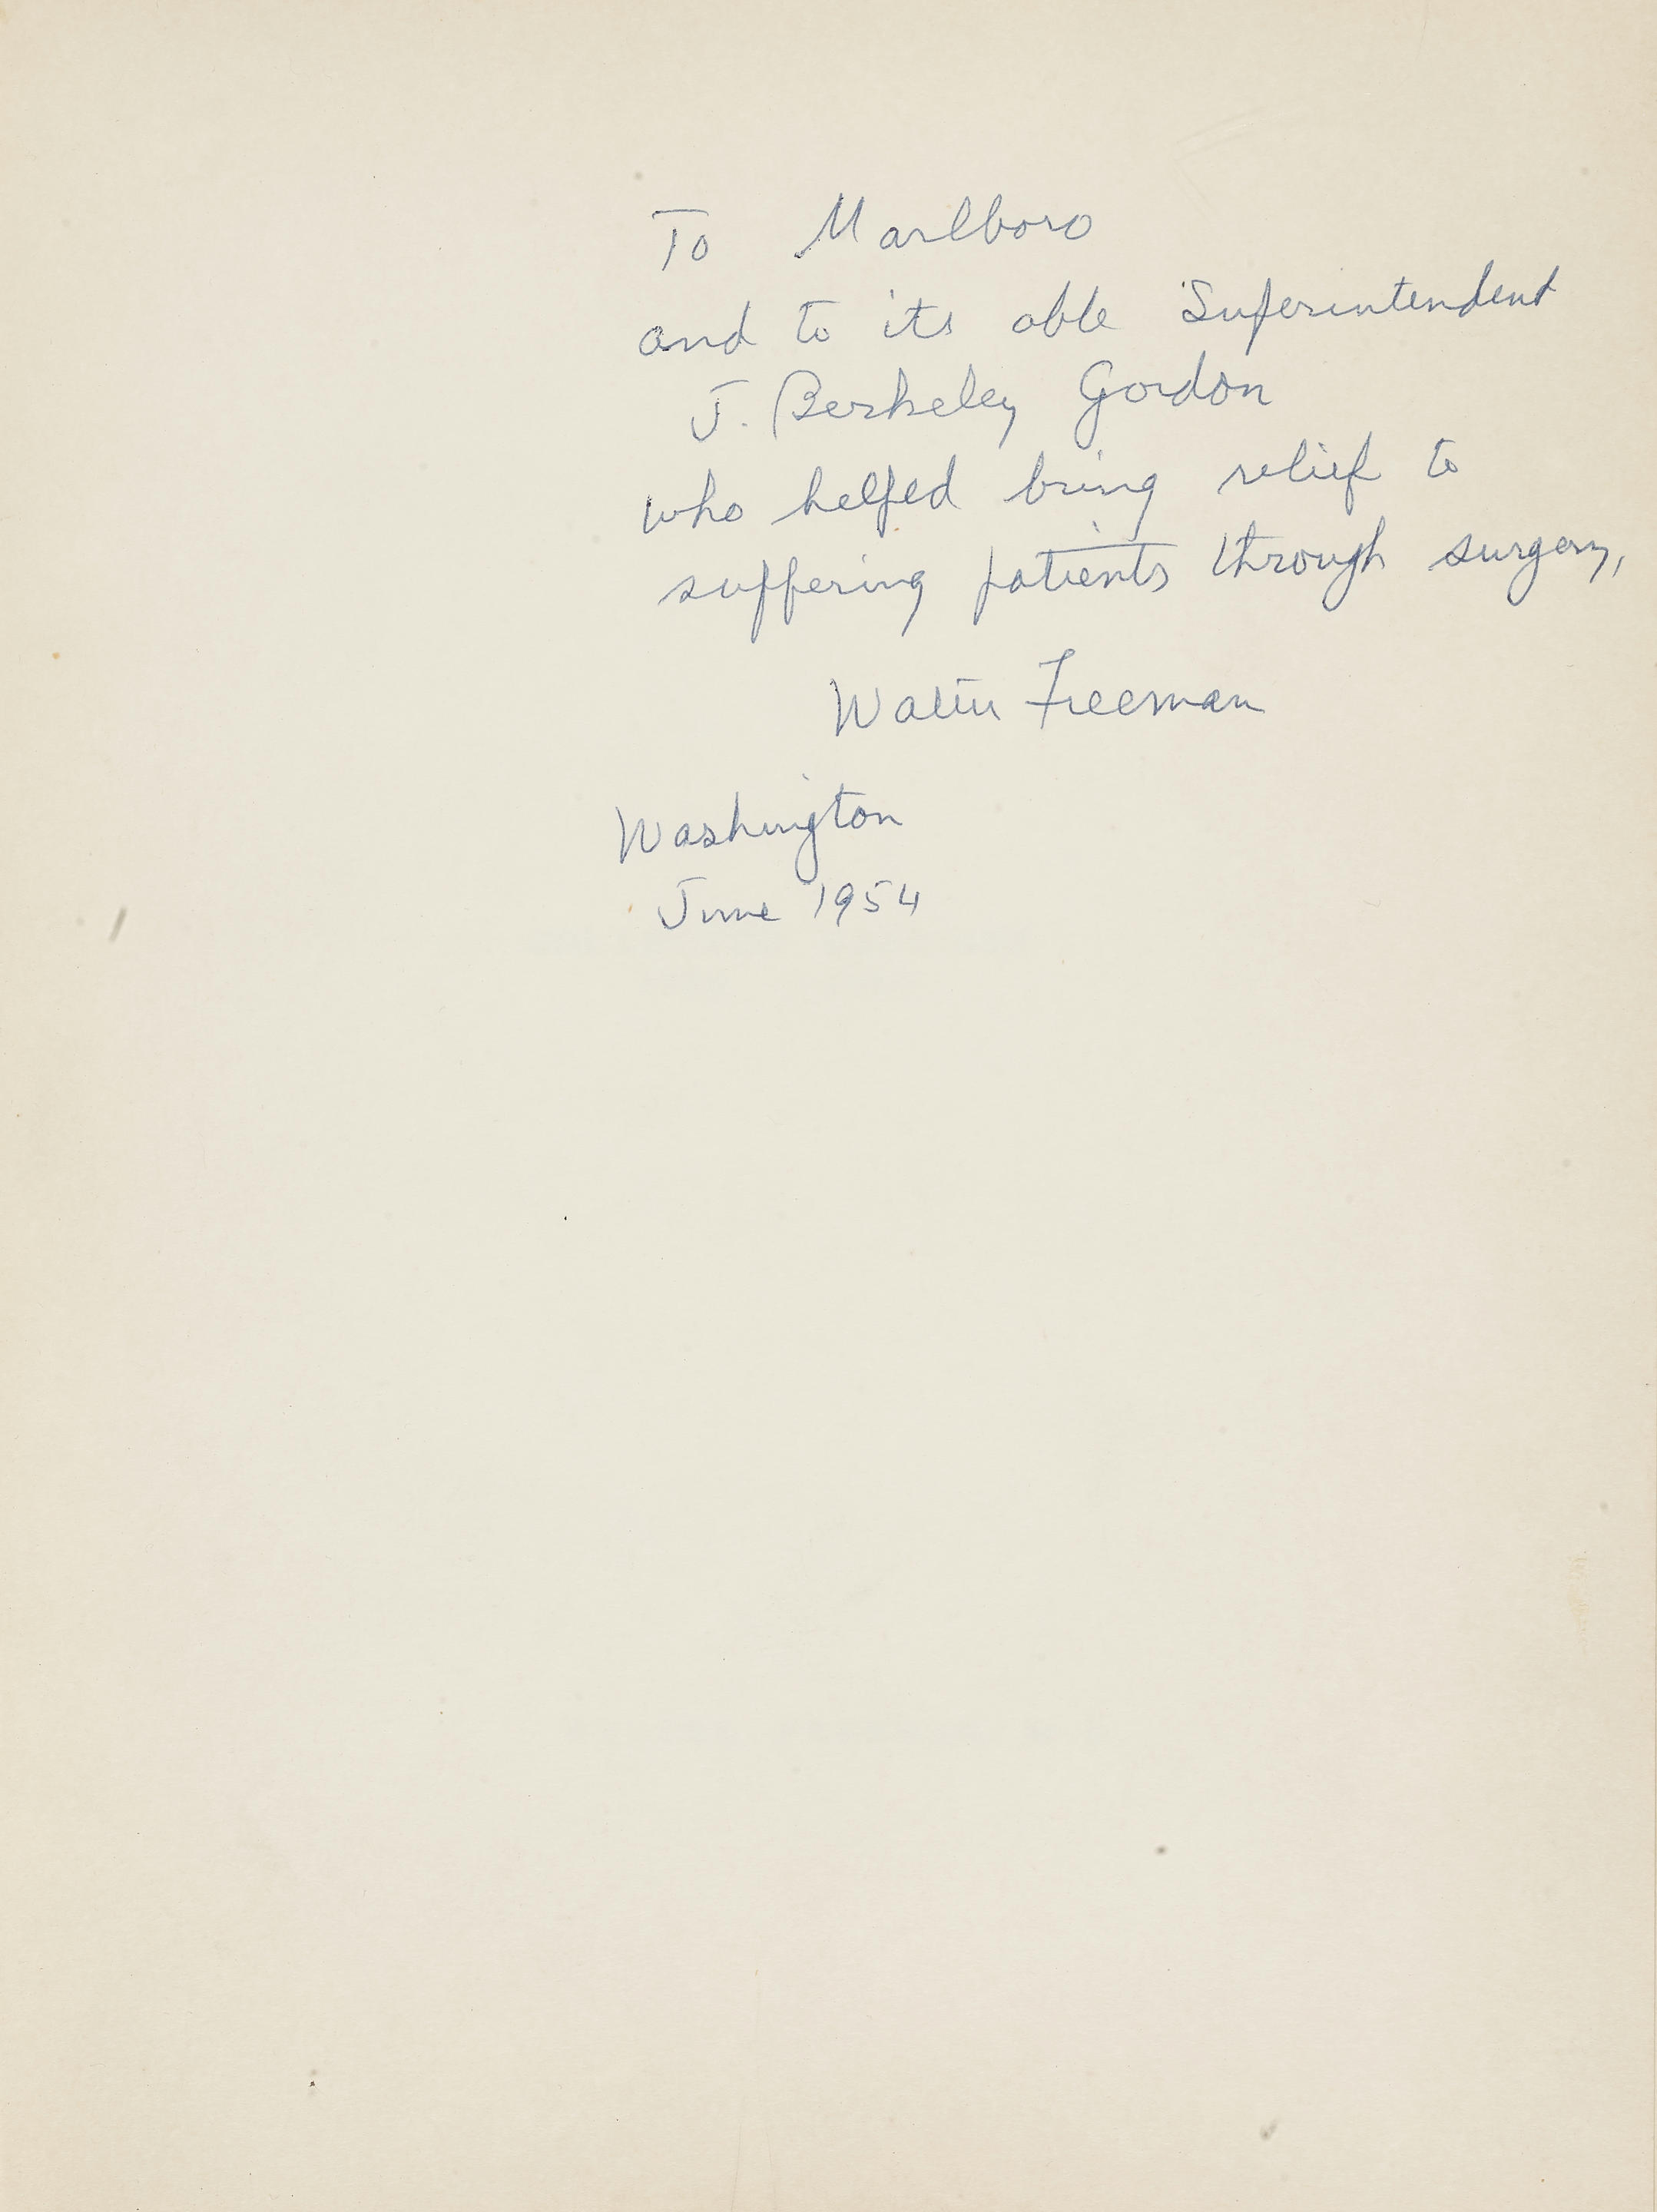 To Marlboro
and to its able Superintendent
J. Berkeley Gordon
who helped bring relief to
suffering patients through surgery,
Walter Freeman
Washington
June 1954